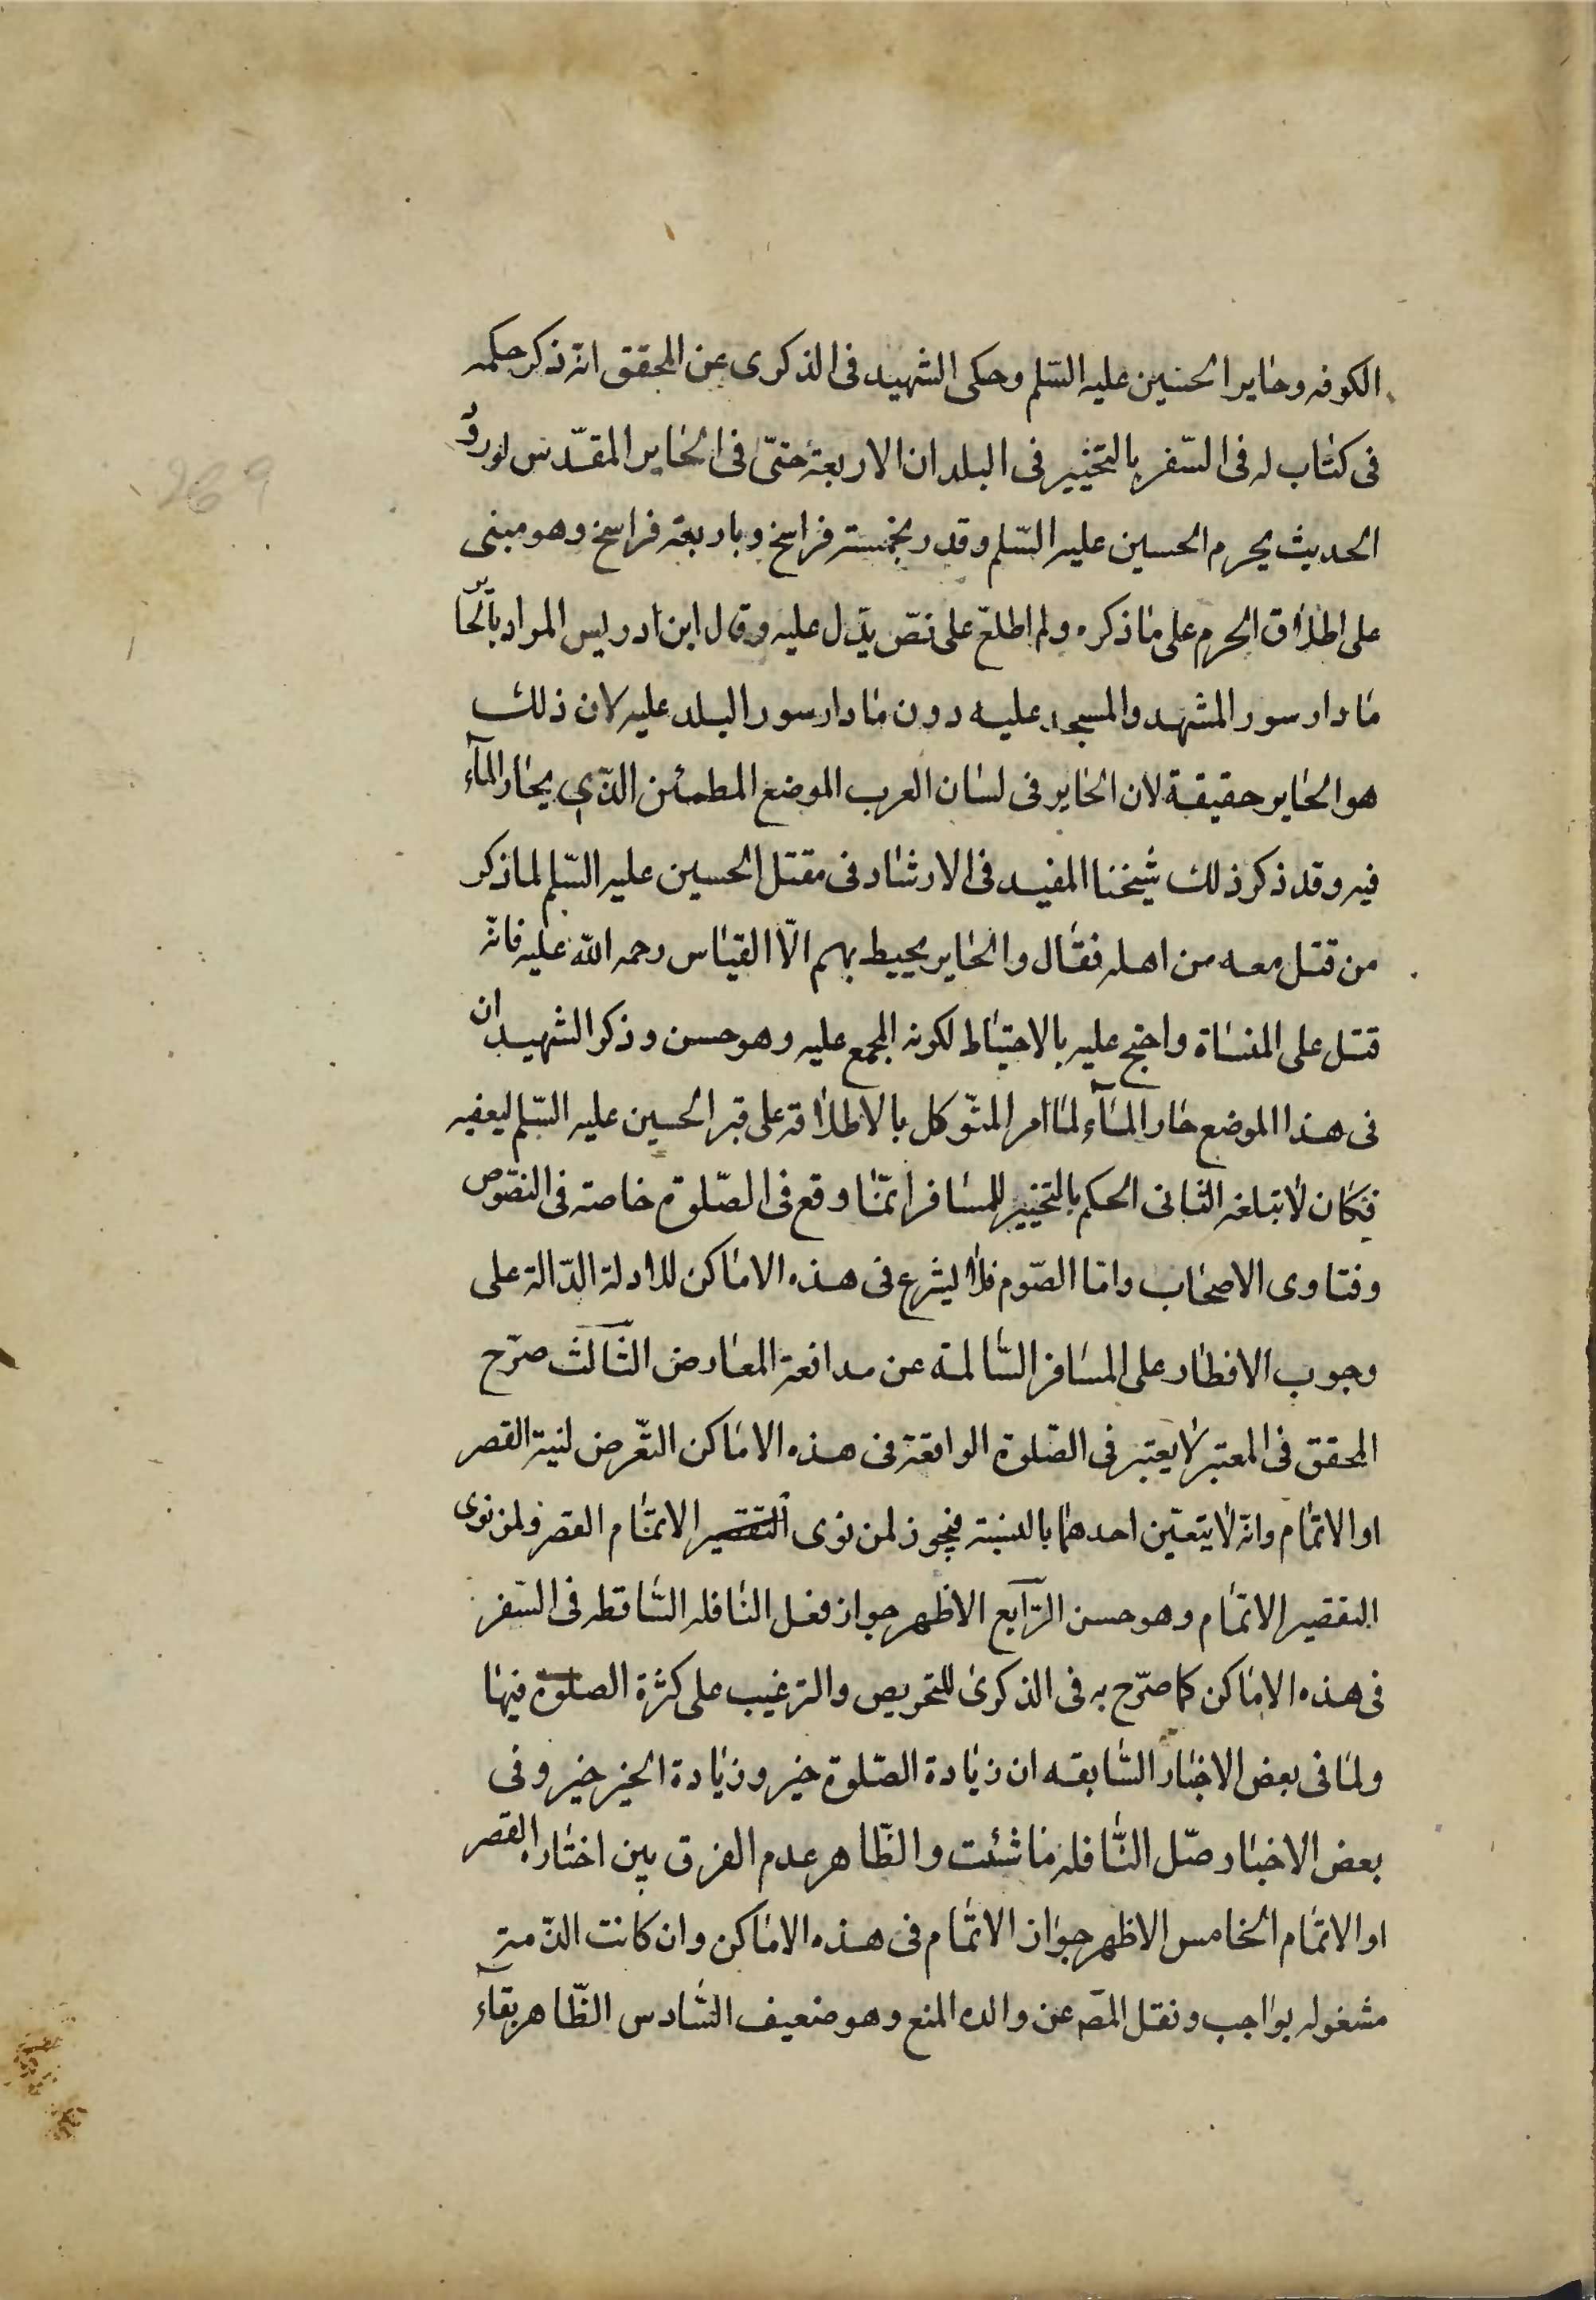 الكوفه وحاير الحسين عليه السّلم وحكى الشهيد فى الذكرى عن المحقق انّه ذكر حكمه
فى كتاب له فى السّفر بالتخيير فى البلدان الاربعة حتىّ فى الحاير المقدّس لورود
الحديث بحرم الحسين عليه السّلم وقدر بخمسة فراسخ وباربعة فراسخ وهو مبنى
على اطلاق الحرم على ما ذكره ولم اطلع على نصّ يدّل عليه وقال ابن ادريس المراد بالحاير
ما دار سور المشهد والمسجد عليه دون ما دار سور البلد عليه لان ذلك
هو الحاير حقيقة لان الحاير فى لسان العرب الموضع المطمئن الذّي يحار المآء
فيه وقد ذكر ذلك شيخنا المفيد فى الارشاد فى مقتل الحسين عليه السّلم لما ذكر
من قتل معه من اهله فقال والحاير يحيط بهم الّا القباس رحمه الله عليه فانّه
قتل على المنساة واحتج عليه بالاحتياط لكونه المجمع عليه وهو حسن وذكر الشهيد ان
فى هذا الموضع حار المآء لما امر المتوّكل بالاطلاقه على قبر الحسين عليه السّلم ليعفيه
فكان لا تبلغه الثانى الحكم بالتخيير للمسافر انمّا وقع فى الصّلوة خاصة فى النصّوص
وفتاوى الاصحاب وامّا الصّوم فلا يشرع فى هذه الاماكن للادلة الدّالة على
وجوب الافطار على المسافر السّالمة عن مدافعة المعارض الثّالث صرّح
المحقق فى المعتبر لا يعتبر فى الصّلوة الواقعة فى هذه الاماكن التعّرض لنية القصر
او الاتمام وانّه لا يتعيّن احدهما بالنسبة فيجوز لمن نوى التقصير الاتمّام القصر ولمن نوى
التقصير الاتمّام وهو حسن الرّابع الاظهر جواز فعل النافله السّاقطه فى السّفر
فى هذه الاماكن كما صرّح به فى الذكرى للتحريص والترغيب على كثرة الصلوة فيها
ولما فى بعض الاخبار السّابقه ان زيادة الصّلوة خير وزيادة الخير خير وفى
بعض الاخبار صّل النّافله ما شئت والظّاهر عدم الفرق بين اختار القصر
او الاتمام الخامس الاظهر جواز الاتمّام فى هذه الاماكن وان كانت الذّمة
مشغوله بواجب ونقل المصّ عن والده المنع وهو ضعيف السّادس الظّاهر بقآء
269